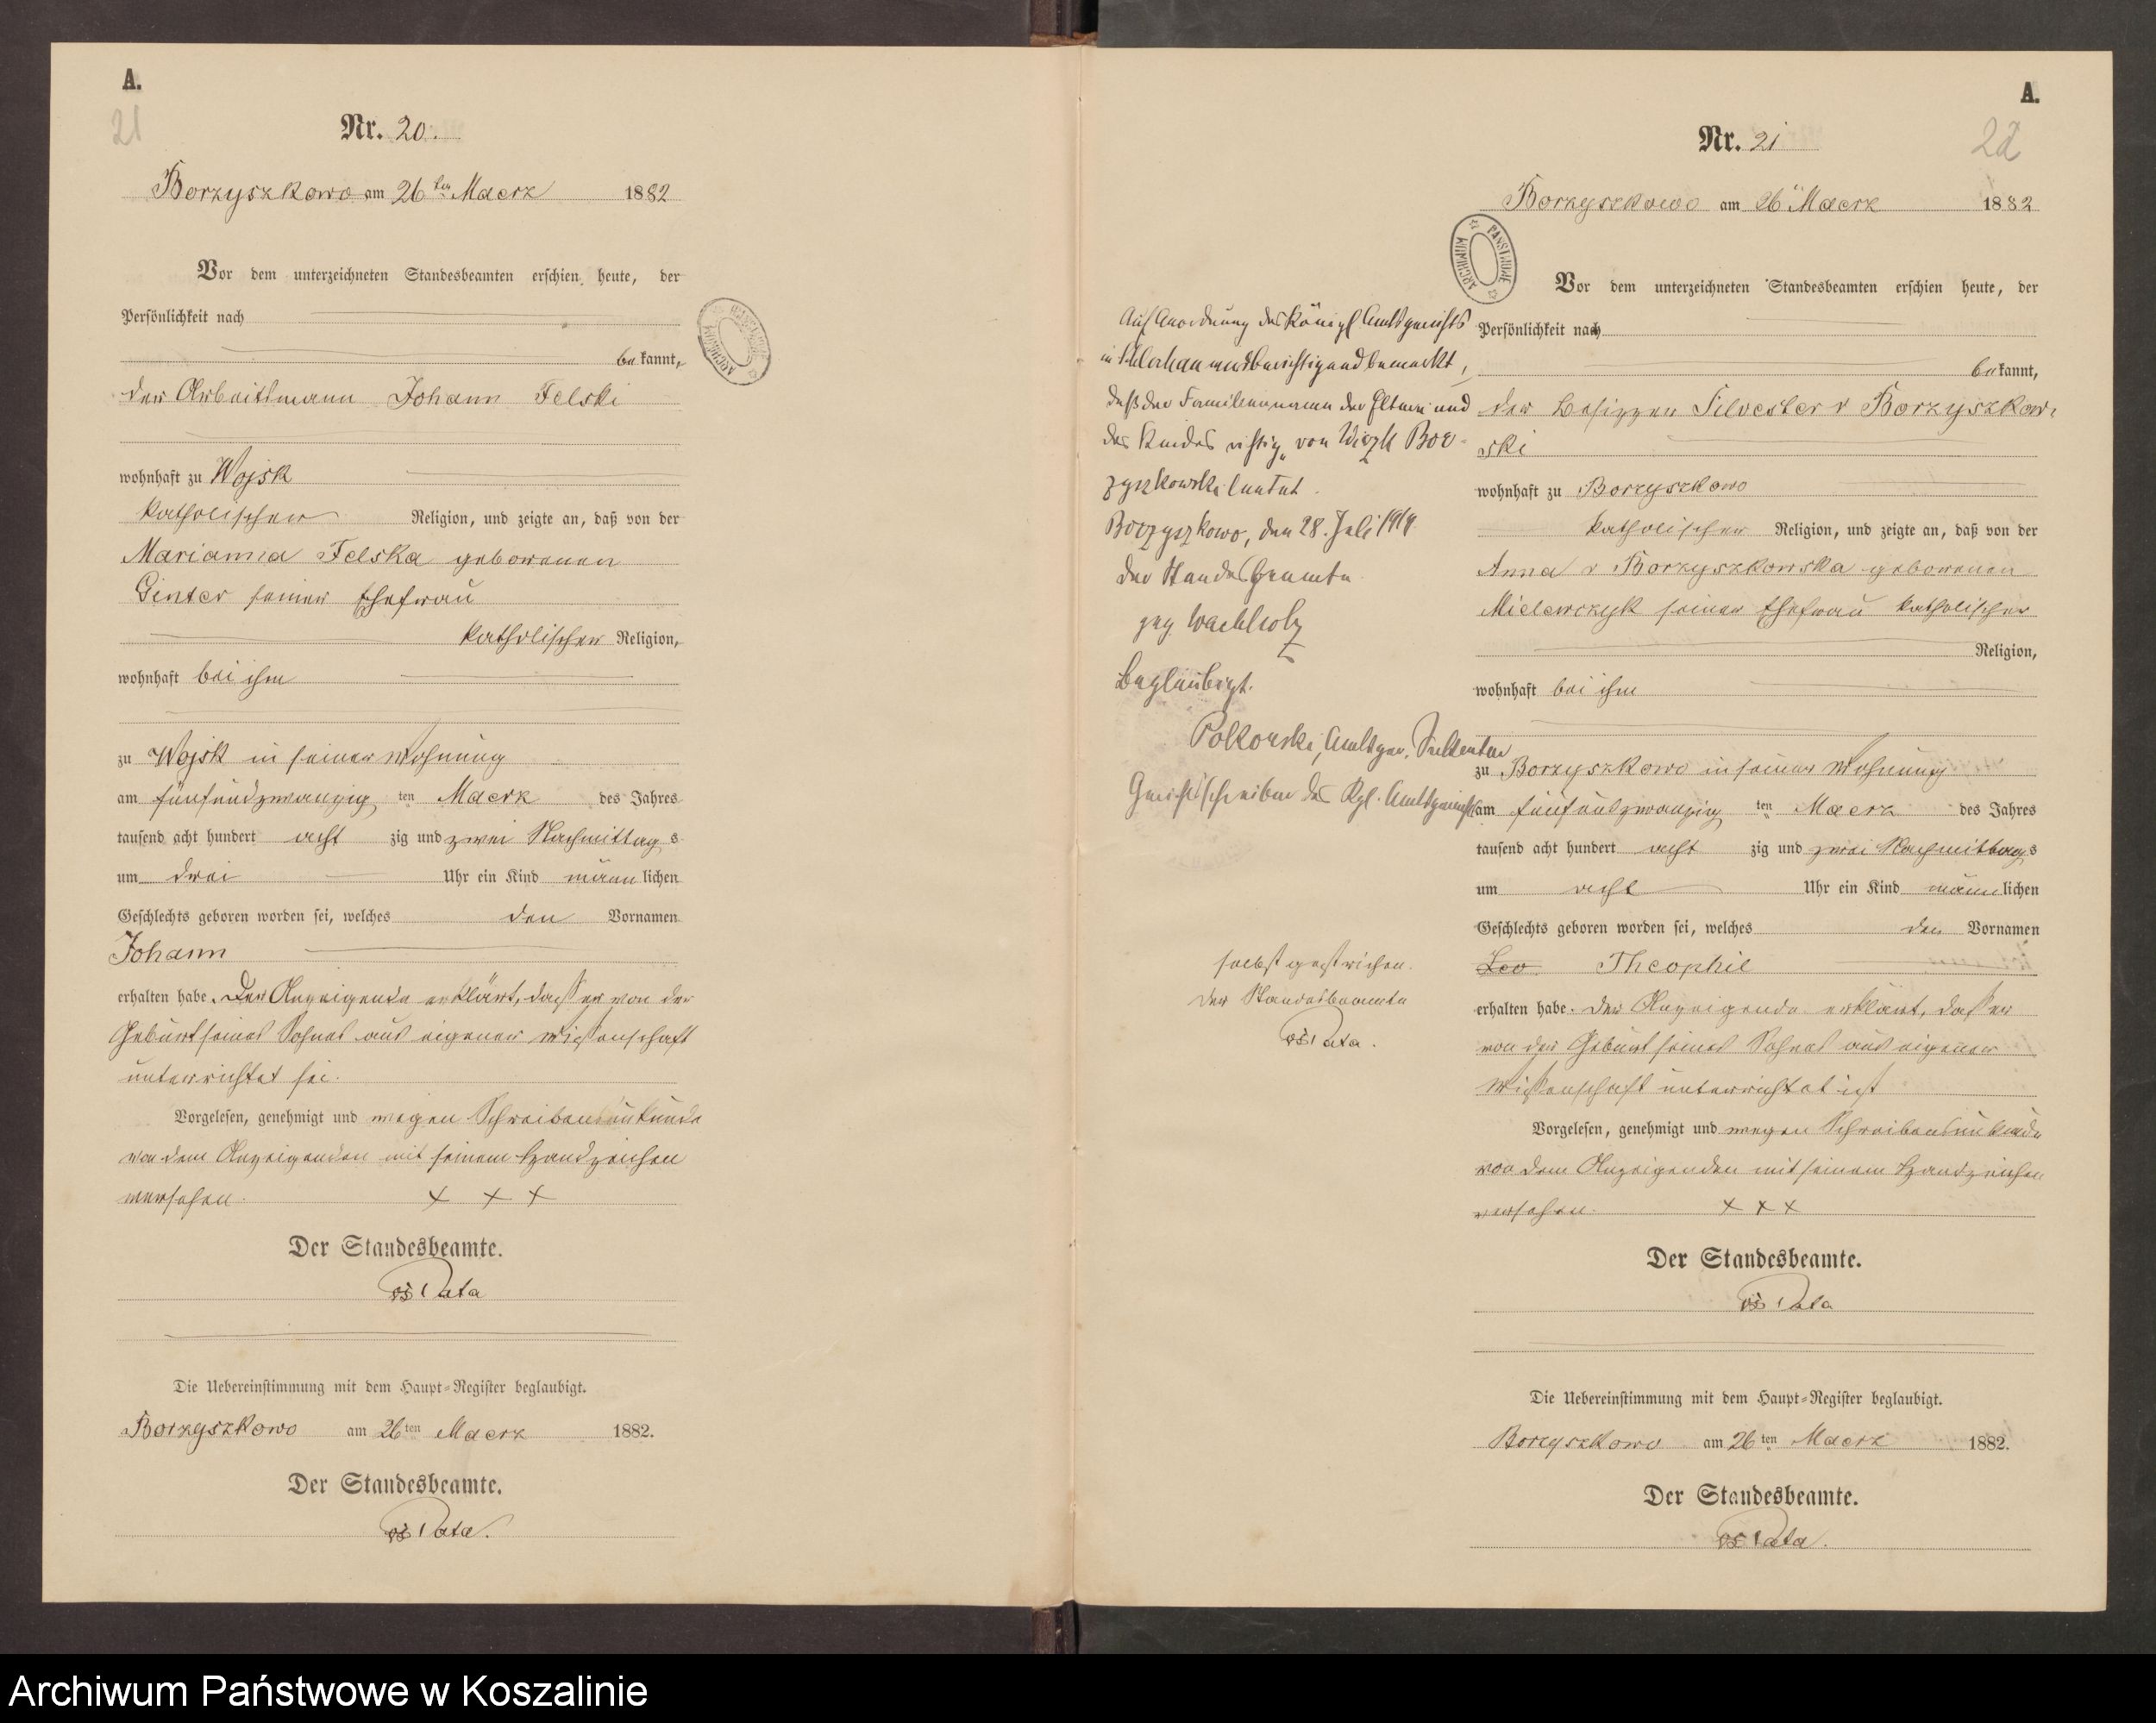 A.
21
Nr. 20.
Borzyszkowo am 26ten Maerz 1882
Vor dem unterzeichneten Standesbeamten erschien heute, der
Persönlichkeit nach
bekannt,
der Arbeitsmann Johann Felski
wohnhaft zu Wojsk
katholischer Religion, und zeigte an, daß von der
Marianna Felska geborenen
Ginter seiner Ehefrau
katholischer Religion,
wohnhaft bei ihm
zu Wojsk in seiner Wohnung
am fünfundzwanzig ten Maerz des Jahres
tausend acht hundert acht zig und zwei Nachmittag s
um drei Uhr ein Kind männ lichen
Geschlechts geboren worden sei, welches den Vornamen
Johann
erhalten habe. Der Anzeigende erklärt, dass er von der
Geburt seines Sohnes aus eigener Wissenschaft
unterrichtet sei.
Vorgelesen, genehmigt und wegen Schreibensunkunde
von dem Anzeigenden mit seinem Handzeichen
versehen. + + +
Der Standesbeamte.
Pata
Die Uebereinstimmung mit dem Haupt-Register beglaubigt.
Borzyszkowo am 26ten Maerz 1882.
Der Standesbeamte.
Pata.
Auf Anordnung des Königl Amtsgerichts
in Schlochau wird berichtigend bemerkt,
daß der Familienname der Eltern und
des Kindes richtig „von Wiczk Bor-
zyszkowski lautet.
Borzyszkowo, den 28. Juli 1919.
Der Standesbeamte
gez. Wachholz
Beglaubigt.
Polkowski, Amtsger. Sekretär
Gerichtsschreiber des Kgl. Amtsgerichts
selbst gestrichen.
Der Standesbeamte
Pata.
A.
22
Nr. 21
Borzyszkowo am 26 Maerz 1882
Vor dem unterzeichneten Standesbeamten erschien heute, der
Persönlichkeit nach
bekannt,
der Besitzer Silvester v Borzyszkow-
ski
wohnhaft zu Borzyszkowo
katholischer Religion, und zeigte an, daß von der
Anna v Borzyszkowska geborenen
Mielewczyk seiner Ehefrau katholischer
Religion,
wohnhaft bei ihm
zu Borzyszkowo in seiner Wohnung
am fünfundzwanzig ten Maerz des Jahres
tausend acht hundert acht zig und zwei Nachmittags
um acht Uhr ein Kind männ lichen
Geschlechts geboren worden sei, welches den Vornamen
Leo Theophil
erhalten habe. Der Anzeigende erklärt, daß er
von der Geburt seines Sohnes aus eigener
Wissenschaft unterrichtet ist
Vorgelesen, genehmigt und wegen Schreibensunkunde
von dem Anzeigenden mit seinem Handzeichen
versehen. + + +
Der Standesbeamte.
Pata
Die Uebereinstimmung mit dem Haupt-Register beglaubigt.
Borzyszkowo am 26ten Maerz 1882.
Der Standesbeamte.
Pata.
Archiwum Państwowe w Koszalinie